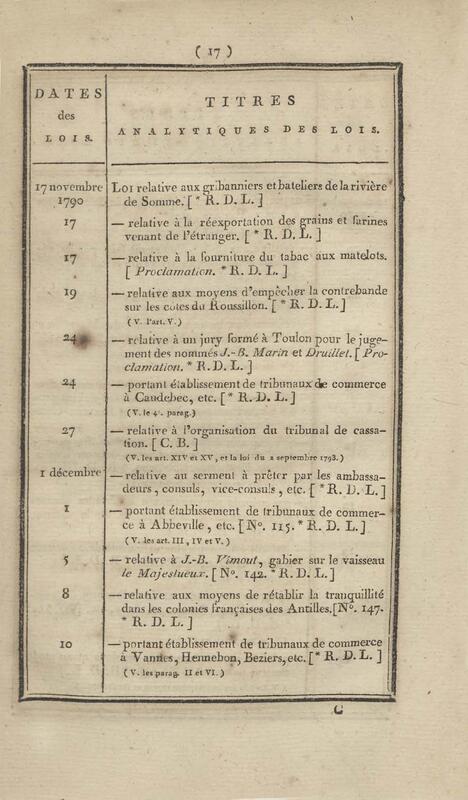 ( 17 )
DATES
des
LOIS.
TITRES
ANALYTIQUES DES LOIS.
17 novembre 1790 Loi relative aux gribanniers et bateliers de la rivière
de Somme. [ * R. D. L. ]
17 — relative à la réexportation des grains et farines
venant de l'étranger. [ * R. D. L. ]
17 — relative à la fourniture du tabac aux matelots.
[ Proclamation. * R. D. L. ]
19 — relative aux moyens d'empêcher la contrebande
sur les côtes du Roussillon. [ * R. D. L. ]
( V. l'art. V. )
24 — relative à un jury formé à Toulon pour le juge-
ment des nommés J.-B. Marin et Druillet. [ Pro-
clamation. * R. D. L. ]
24 — portant établissement de tribunaux de commerce
à Caudebec, etc. [ * R. D. L. ]
(V. le 4e. parag.)
27 — relative à l'organisation du tribunal de cassa-
tion. [ C. B. ]
(V. les art. XIV et XV, et la loi du 2 septembre 1793.)
1 décembre — relative au serment à prêter par les ambassa-
deurs, consuls, vice-consuls, etc. [ * R. D. L. ]
1 — portant établissement de tribunaux de commer-
ce à Abbeville, etc. [ No. 115. * R. D. L. ]
( V. les art. III, IV et V. )
5 — relative à J.-B. Vimout, gabier sur le vaisseau
le Majestueux. [ No. 142. * R. D. L. ]
8 — relative aux moyens de rétablir la tranquillité
dans les colonies françaises des Antilles. [No. 147.
* R. D. L. ]
10 — portant établissement de tribunaux de commerce
à Vannes, Hennebon, Beziers, etc. [ * R. D. L. ]
( V. les parag. II et VI. )
C